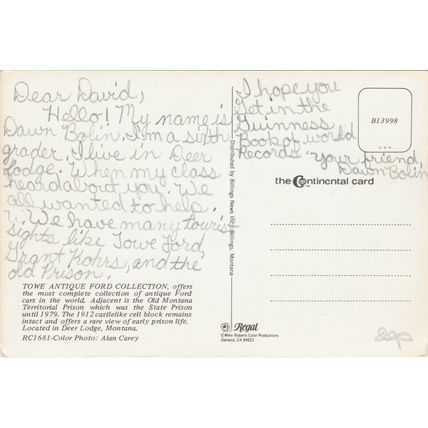 Dear David,
Hello! My name is
Dawn Bolin. I'm a sixth
grader. I live in Deer
Lodge. When my class
heard about you. We
all wanted to help.
We have many touris
sights like Towe Ford,
Grant Kohrs, and the
old Prison.
TOWE ANTIQUE FORD COLLECTION, offers
the most complete collection of antique Ford
cars in the world. Adjacent is the Old Montana
Territorial Prison which was the State Prison
until 1979. The 1912 castlelike cell block remains
intact and offers a rare view of early prison life.
Located in Deer Lodge, Montana.
RC1681-Color Photo: Alan Carey
Distributed by Billings News Inc., Billings, Montana
I hope you
get in the
Guinness
Book of world
Records.
Your friend,
Dawn Bolin
B13998
the Continental card
Regal
©Mike Roberts Color Productions
Oakland, CA 94623